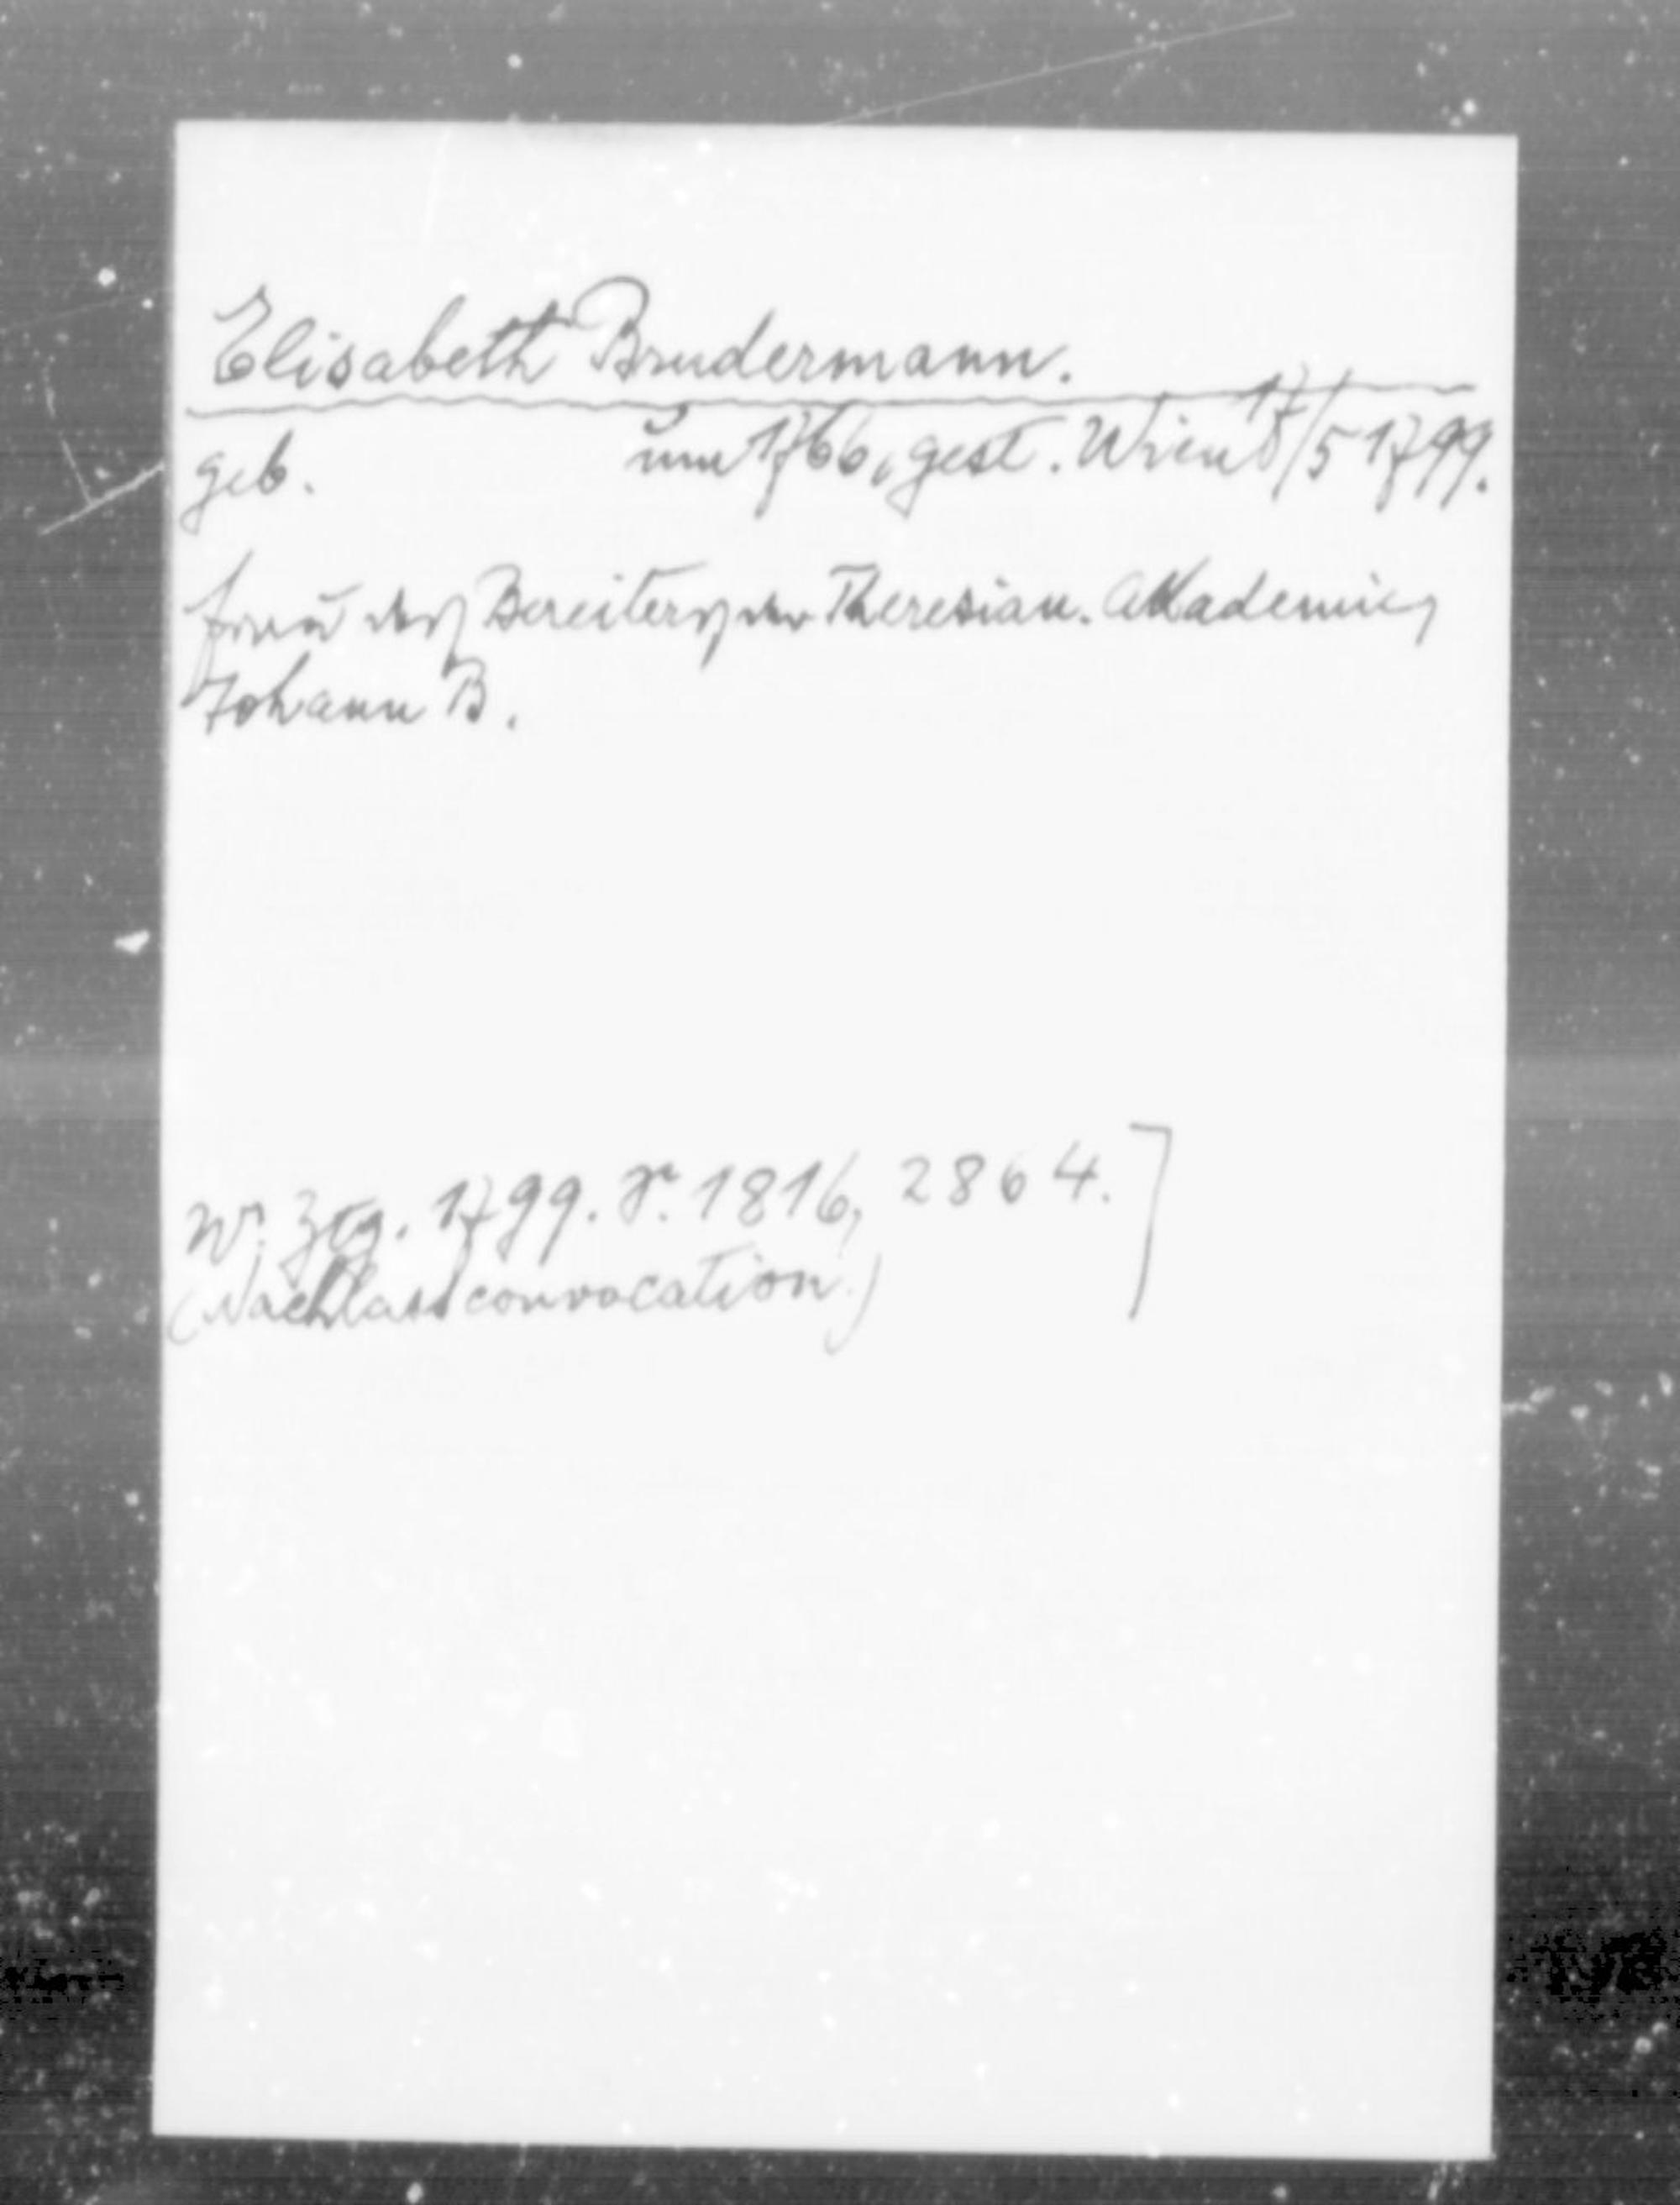 Elisabeth Brudermann.
geb. um 1766, gest. Wien 17/5 1799.
Frau des Bereiters der Theresian. Akademie,
Johann B.
W. Ztg. 1799. S. 1816, 2864.]
(Nachlassconvocation.)